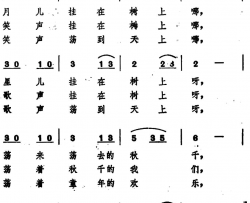 月 儿 挂 在 树 上 哪，
笑 声 挂 在 树 上 哪，
笑 声 荡 到 天 上 哪，
30 10 | 3 13 | 2 24 | 2 — |
星 儿 挂 在 树 上 呀，
歌 声 挂 在 树 上 呀，
歌 声 荡 到 天 上 呀，
30 10 | 3 13 | 5 35 | 6 — |
荡 来 荡 去的 秋 千，
荡 着 秋千的 我 们，
荡 着 童 年的 欢 乐，